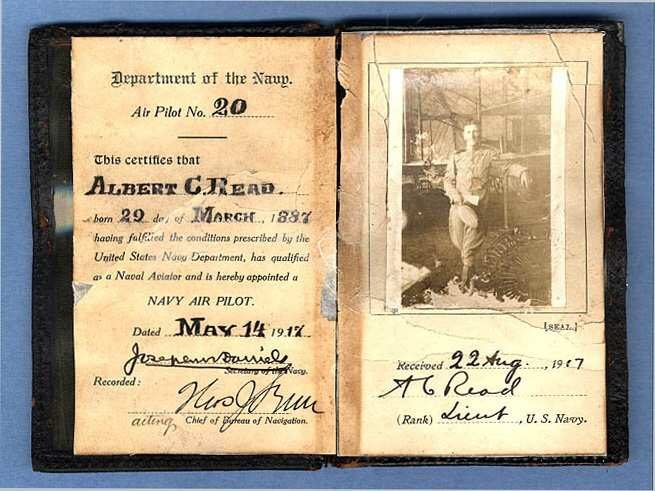 Department of the Navy.
Air Pilot No. 20
This certifies that
ALBERT C. READ.
born 29 day of MARCH, 1887
having fulfilled the conditions prescribed by the
United States Navy Department, has qualified
as a Naval Aviator and is hereby appointed a
NAVY AIR PILOT.
Dated MAY 14 1917
Josephus Daniels
Secretary of the Navy.
Recorded:
acting Chief of Bureau of Navigation.
[SEAL.]
Received 22 Aug., 1917
A C Read
(Rank) Lieut, U. S. Navy.